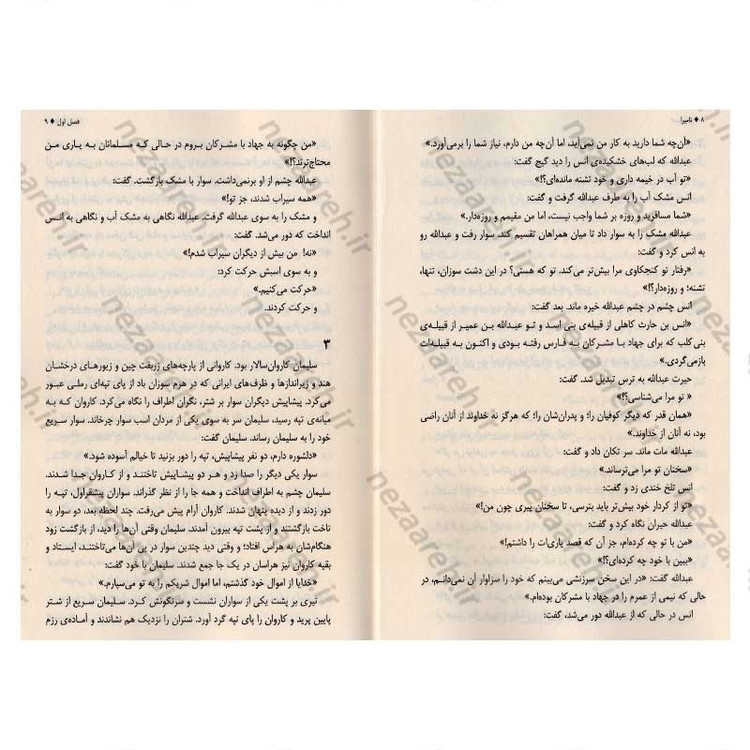 ۸ ♦ نامیرا
«آن‌چه شما دارید به کار من نمی‌آید، اما آن‌چه من دارم، نیاز شما را برمی‌آورد.»
عبدالله که لب‌های خشکیده‌ی انس را دید گیج گفت:
«تو آب در خیمه داری و خود تشنه مانده‌ای؟!»
انس مشک آب را به طرف عبدالله گرفت و گفت:
«شما مسافرید و روزه بر شما واجب نیست، اما من مقیمم و روزه‌دار.»
عبدالله مشک را به سوار داد تا میان همراهان تقسیم کند. سوار رفت و عبدالله رو
به انس کرد و گفت:
«رفتار تو کنجکاوی مرا بیش‌تر می‌کند. تو که هستی؟ در این دشت سوزان، تنها،
تشنه؛ و روزه‌دار؟!»
انس چشم در چشم عبدالله خیره ماند. بعد گفت:
«انس بن حارث کاهلی از قبیله‌ی بنی اسد و تو عبدالله بن عمیر از قبیله‌ی
بنی کلب که برای جهاد با مشرکان به فارس رفته بودی و اکنون به قبیله‌ات
بازمی‌گردی.»
حیرت عبدالله به ترس تبدیل شد. گفت:
« تو مرا می‌شناسی؟!»
«همان قدر که دیگر کوفیان را؛ و پدران‌شان را؛ که هرگز نه خداوند از آنان راضی
بود، نه آنان از خداوند.»
عبدالله مات ماند. سر تکان داد و گفت:
«سخنان تو مرا می‌ترساند.»
انس تلخ خندی زد و گفت:
«تو از کردار خود بیش‌تر باید بترسی، تا سخنان پیری چون من!»
عبدالله حیران نگاه کرد و گفت:
«من با تو چه کرده‌ام، جز آن که قصد یاری‌ات را داشتم!»
«ببین با خود چه کرده‌ای؟!»
عبدالله گفت: «در این سخن سرزنشی می‌بینم که خود را سزاوار آن نمی‌دانم، در
حالی که نیمی از عمرم را در جهاد با مشرکان بوده‌ام.»
انس در حالی که از عبدالله دور می‌شد، گفت:
فصل اول ♦ ۹
«من چگونه به جهاد با مشرکان بروم در حالی که مسلمانان به یاری من
محتاج‌ترند؟!»
عبدالله چشم از او برنمی‌داشت. سوار با مشک بازگشت. گفت:
«همه سیراب شدند، جز تو!»
و مشک را به سوی عبدالله گرفت. عبدالله نگاهی به مشک آب و نگاهی به انس
انداخت که دور می‌شد. گفت:
«نه! من بیش از دیگران سیراب شدم!»
و به سوی اسبش حرکت کرد:
«حرکت می‌کنیم.»
و حرکت کردند.
۳
سلیمان کاروان‌سالار بود. کاروانی از پارچه‌های زربفت چین و زیورهای درخشان
هند و زیراندازها و ظرف‌های ایرانی که در هرم سوزان باد از پای تپه‌ای رملی عبور
می‌کرد. پیشاپیش دیگران سوار بر شتر، نگران اطراف را نگاه می‌کرد. کاروان که به
میانه‌ی تپه رسید، سلیمان سر به سوی یکی از مردان اسب سوار چرخاند. سوار سریع
خود را به سلیمان رساند. سلیمان گفت:
«دلشوره دارم، دو نفر پیشاپیش، تپه را دور بزنید تا خیالم آسوده شود.»
سوار یکی دیگر را صدا زد و هر دو پیشاپیش تاختند و از کاروان جدا شدند.
سلیمان چشم به اطراف انداخت و همه جا را از نظر گذراند. سواران پیشقراول، تپه را
دور زدند و از دیده پنهان شدند. کاروان آرام پیش می‌رفت. چند لحظه بعد، دو سوار به
تاخت بازگشتند و از پشت تپه بیرون آمدند. سلیمان وقتی آن‌ها را دید، از بازگشت زود
هنگام‌شان به هراس افتاد؛ و وقتی دید چندین سوار در پی آن‌ها می‌تاختند، ایستاد و
بقیه کاروان نیز هراسان در یک جا جمع شدند. سلیمان با خود گفت:
«خدایا از اموال خود گذشتم، اما اموال شریکم را به تو می‌سپارم.»
تیری بر پشت یکی از سواران نشست و سرنگونش کرد. سلیمان سریع از شتر
پایین پرید و کاروان را پای تپه گرد آورد. شتران را نزدیک هم نشاندند و آماده‌ی رزم
nezaareh.ir